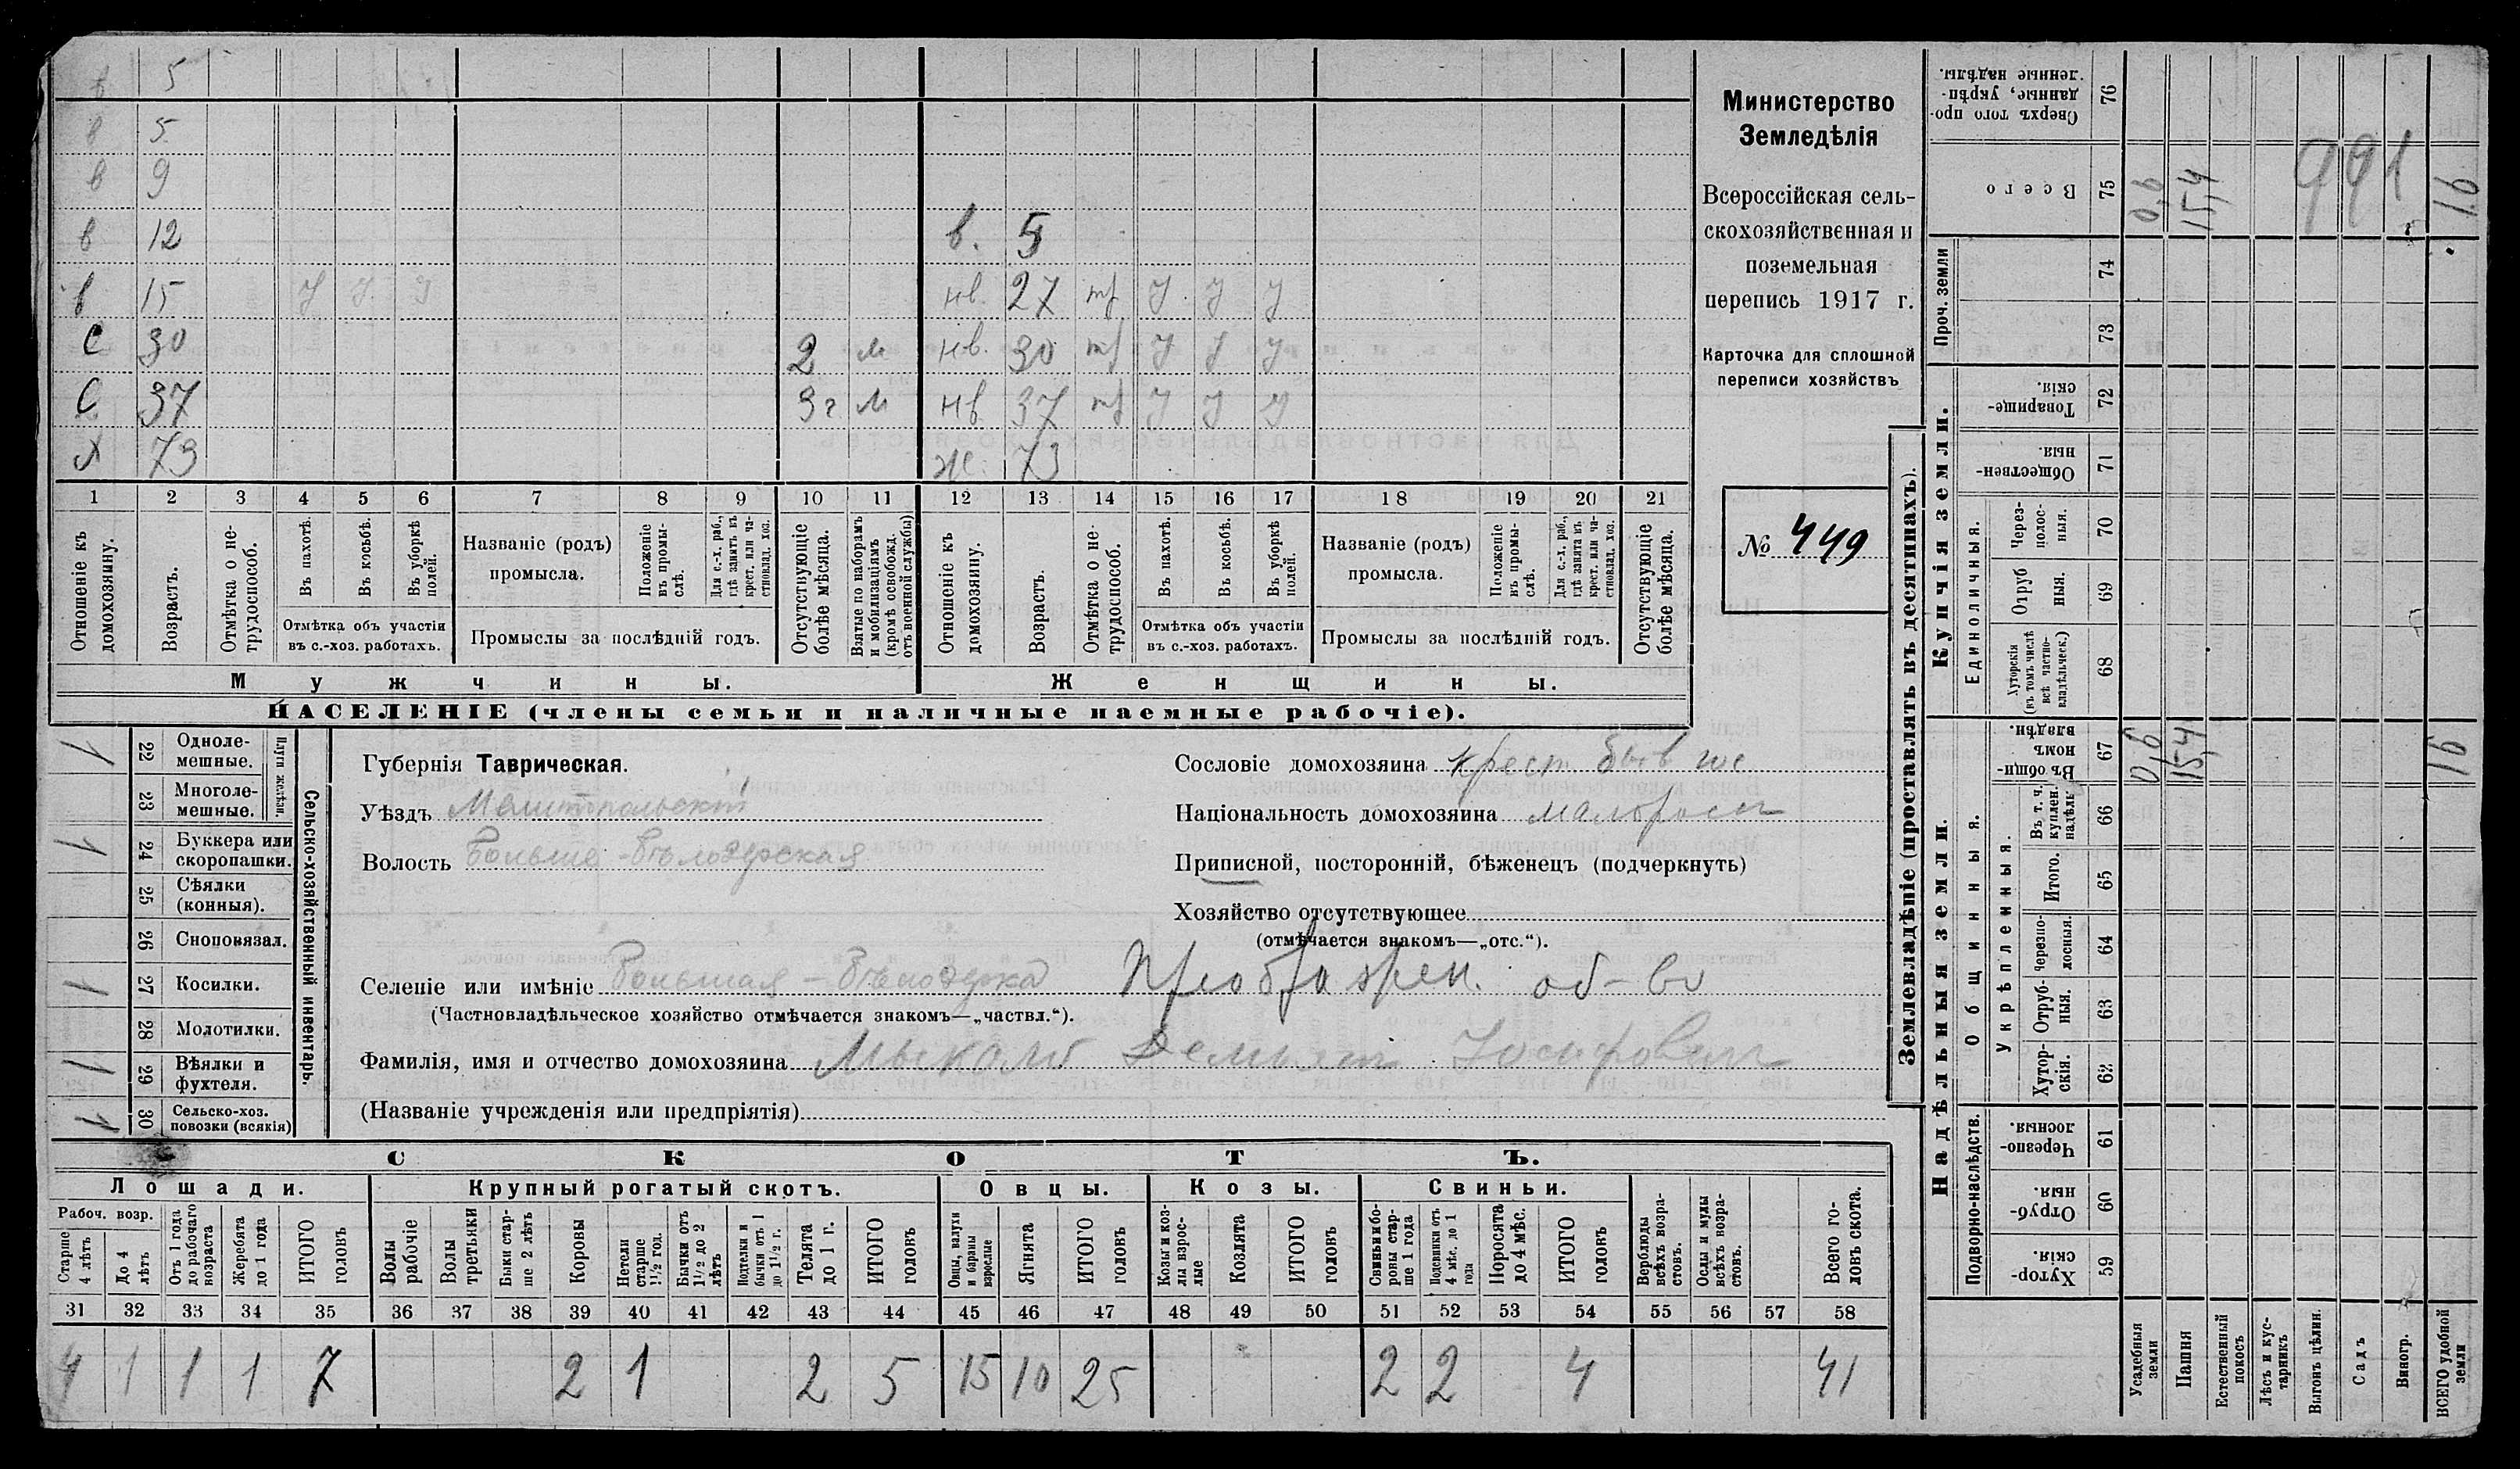 в 5
в 5
в 9
в 12 в. 5
в 15 У У У нв. 27 тр У У У
С 30 2 м нв. 30 тр У У У
С 37 3 г м нв 37 тр У У У
Х 73 ж. 73
1 2 3 4 5 6 7 8 9 10 11 12 13 14 15 16 17 18 19 20 21
Отношеніе къ домохозяину.
Возрастъ.
Отмѣтка о не-трудоспособ.
Въ пахотѣ.
Въ косьбѣ.
Въ уборкѣ полей.
Отмѣтка объ участіи
въ с.-хоз. работахъ.
Названіе (родъ)
промысла.
Положеніе въ промы-слѣ.
Для с.-х. раб., гдѣ занятъ въ крест. или ча-стновлад. хоз.
Промыслы за послѣдній годъ.
Отсутствующіе болѣе мѣсяца.
Взятые по наборамъ и мобилизаціямъ (кромѣ освобожд. отъ военной службы)
Отношеніе къ домохозяину.
Возрастъ.
Отмѣтка о не-трудоспособ.
Въ пахотѣ.
Въ косьбѣ.
Въ уборкѣ полей.
Отмѣтка объ участіи
въ с.-хоз. работахъ.
Названіе (родъ)
промысла.
Положеніе въ промы-слѣ.
Для с.-х. раб., гдѣ занята въ крест. или ча-стновлад. хоз.
Промыслы за послѣдній годъ.
Отсутствующіе болѣе мѣсяца.
Мужчины. Женщины.
НАСЕЛЕНІЕ (члены семьи и наличные наемные рабочіе).
Министерство
Земледѣлія
Всероссійская сель-
скохозяйственная и
поземельная
перепись 1917 г.
Карточка для сплошной
переписи хозяйствъ
№ 449
1 22 Одноле-мешные.
23 Многоле-мешные.
Плуги желѣзн.
1 24 Буккера или скоропашки.
25 Сѣялки (конныя).
26 Сноповязал.
1 27 Косилки.
28 Молотилки.
1 29 Вѣялки и фухтеля.
1 30 Сельско-хоз. повозки (всякія)
Сельско-хозяйственный инвентарь.
Губернія Таврическая.
Уѣздъ Мелитопольскій
Волость Больше-Бѣлозерская
Селеніе или имѣніе Большая-Бѣлозерка Преображен. об-во
(Частновладѣльческое хозяйство отмѣчается знакомъ—„частвл.“).
Фамилія, имя и отчество домохозяина Демьян Іосифович
(Названіе учрежденія или предпріятія)
Сословіе домохозяина крест. быв гос
Національность домохозяина малоросс
Приписной, посторонній, бѣженецъ (подчеркнуть)
Хозяйство отсутствующее
(отмѣчается знакомъ—„отс.“).
СКОТЪ.
Лошади. Крупный рогатый скотъ. Овцы. Козы. Свиньи.
Рабоч. возр.
Старше 4 лѣтъ
До 4 лѣтъ
Отъ 1 года до рабочаго возраста
Жеребята до 1 года
ИТОГО головъ
Волы рабочіе
Волы третьяки
Быки стар-ше 2 лѣтъ
Коровы
Нетели старше 1½ год.
Бычки отъ 1½ до 2 лѣтъ
Подтелки и бычки отъ 1 до 1½ г.
Телята до 1 г.
ИТОГО головъ
Овцы, валухи и бараны взрослые
Ягнята
ИТОГО головъ
Козы и коз-лы взрос-лые
Козлята
ИТОГО головъ
Свиньи и бо-ровы стар-ше 1 года
Подсвинки отъ 4 мѣс. до 1 года
Поросята до 4 мѣс.
ИТОГО головъ
Верблюды всѣхъ возра-стовъ.
Ослы и мулы всѣхъ возра-стовъ.
Всего го-ловъ скота.
31 32 33 34 35 36 37 38 39 40 41 42 43 44 45 46 47 48 49 50 51 52 53 54 55 56 57 58
4 1 1 1 7 2 1 2 5 15 10 25 2 2 4 41
Землевладѣніе (проставлять въ десятинахъ).
Надѣльныя земли. Купчія земли.
Проч. земли
Подворно-наслѣдств.
Общинныя.
Укрѣпленныя.
Единоличныя.
Сверхъ того про-данные, укрѣп-ленные надѣлы. 76
Всего 75 0,6 15,4 991 16
74
73
Товарище-скія. 72
Обществен-ныя. 71
Через-полос-ныя. 70
Отруб ныя. 69
Хуторскія (въ томъ числѣ всѣ частно-владѣльческ.) 68
Въ общи-номъ владѣн. 67 0,6 15,4 16
Въ т. ч. куплен. надѣлъ 66
Итого. 65
Черезпо-лосныя. 64
Отруб-ныя. 63
Хутор-скія. 62
Черезпо-лосныя. 61
Отруб-ныя. 60
Хутор-скія. 59
Усадебныя земли
Пашня
Естественный покосъ
Лѣсъ и кус-тарникъ
Выгонъ цѣлин.
Садъ
Виногр.
ВСЕГО удобной земли